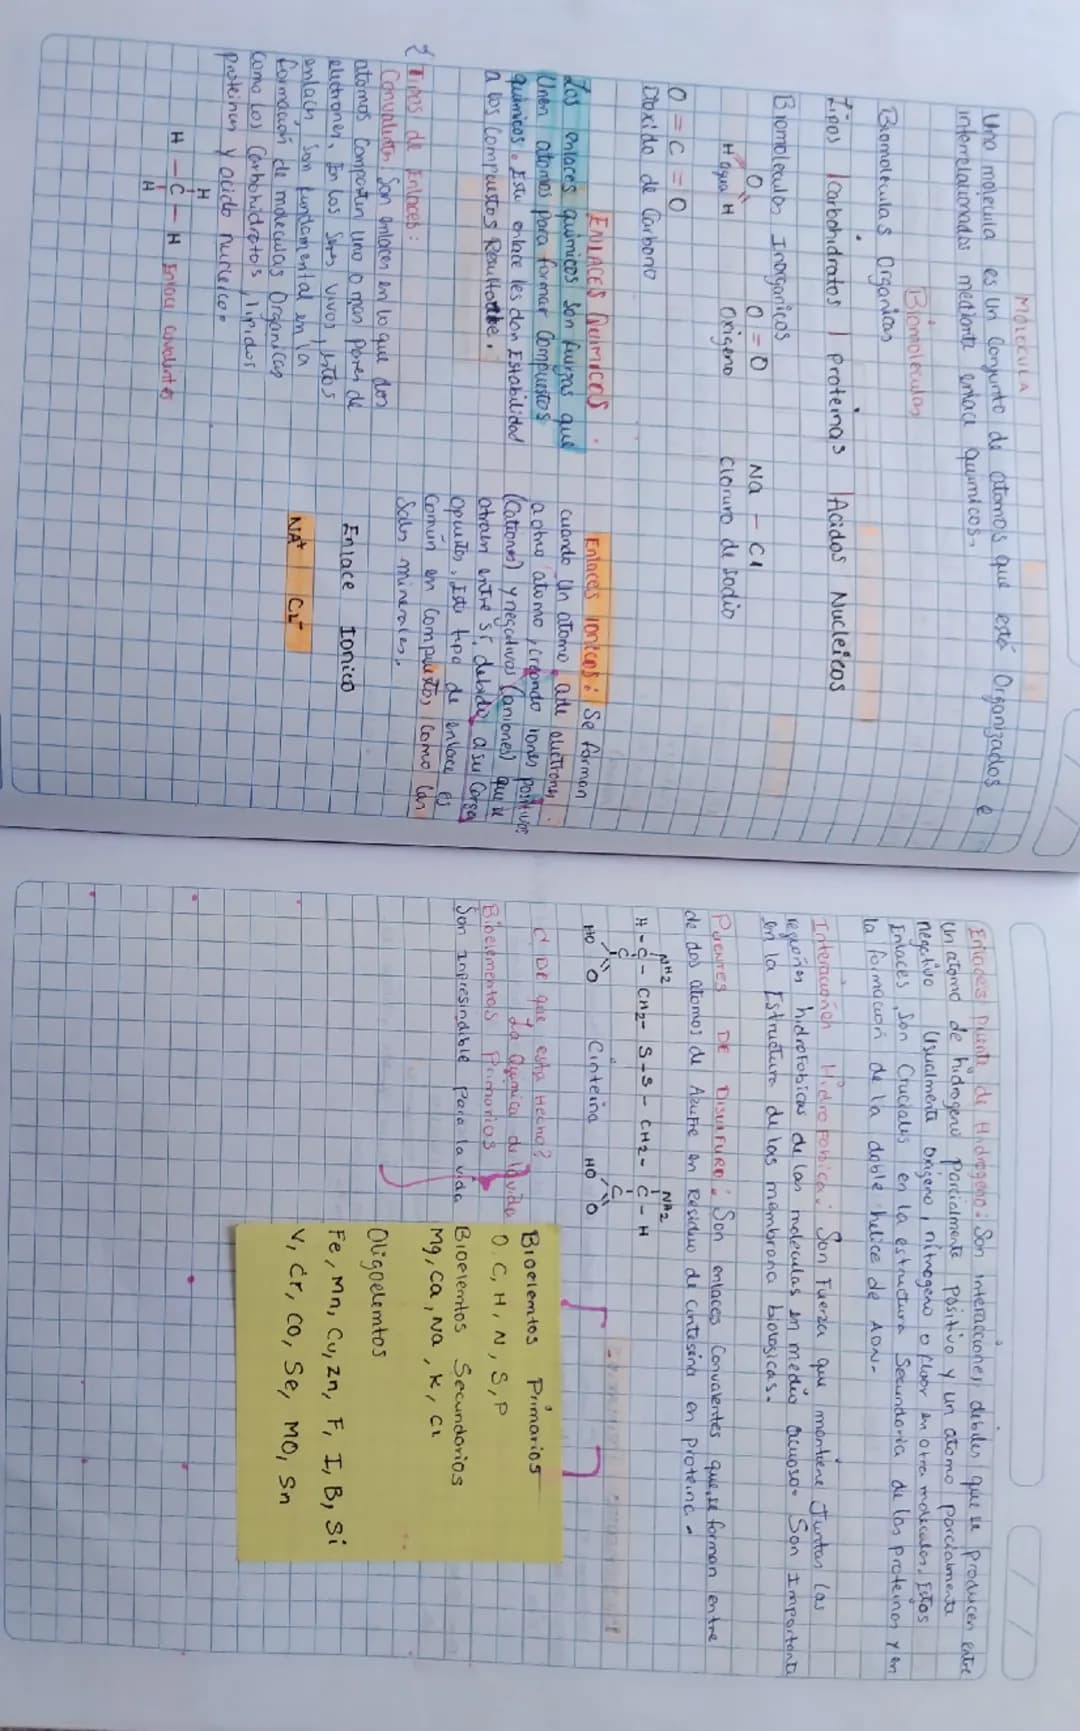 MOLECULA
Una molecula es un Conjunto de atomos que está Organizados e
interrelacionados mediante enlace químicos.
Biomoleculas
Biomoleculas Organicas
Lipos | carbohidratos | proteinas | Acidos Nucleicos
Biomoleculas Inorganicos
O
H agua H
O = O
Oxigeno
Na - Cl
Cloruro de sodio
O = C = O
Dioxido de Carbono
ENLACES Químicos
Los enlaces químicos son fuerzas que
Unen atomos para formar Compuestos
químicos. Este enlace les dan Estabilidad
a los Compuestos Resultante.
Tipos de Enlaces:
Convalentes Son enlaces en lo que dos
atomos Comparten uno o mas pares de
electrones. En los Seres vivos, estos
enlaces, Son fundamental en la
formación de moleculas Organicas
como los Carbohidratos, lipidos
proteinas y acido nucleico.
H
H - C - H Enlace covalentes
H
Enlaces ionicos: Se forman
cuando Un atomo, cede electrones
a otro atomo, creando iones positivos
(Cationes) y negativos (aniones) que se
atraen entre sí, debido a su Carga
opuestos. Este tipo de enlace es
Común en Compuestos como las
Sales minerales.
Enlace Ionico
NA+ CL-
Enlaces Puente de Hidrogeno: Son interacciones debiles que se producen entre
un atomo de hidrogeno parcialmente positivo y un atomo parcialmente
negativo Usualmente oxigeno, nitrogeno o fluor en otra moleculas, Estos
Enlaces, Son Cruciales en la estructura Secundaria de las proteinas y en
la formacion de la doble helice de ADN.
Interacciones Hidrofobica: Son Fuerza que mantiene Juntas las
regiones hidrofobicas de las moleculas en medio acuoso. Son Importante
en la Estructura de las membrana biologicas.
Puentes DE Disulfuro: Son enlaces Convalentes que se forman entre
de dos atomos de Azufre en Residuo de cinteina en proteina.
NH2 NH2
H - C - CH2 - S - S - CH2 - C - H
C C
HO O Cinteina HO O
¿ De que esta Hecho?
La Quimica de la vida
Bioelementos Primarios
Son Inpresindible para la vida
Bioelemtos Primarios
O, C, H, N, S, P
Bioelemtos Secundarios
Mg, Ca, Na, K, Cl
Oligoelemtos
Fe, Mn, Cu, Zn, F, I, B, Si
V, Cr, Co, Se, MO, Sn